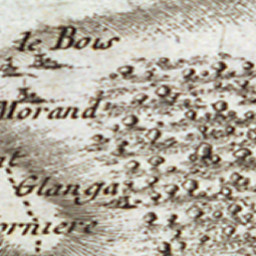 le Bois
Morand
Glanga
orniere